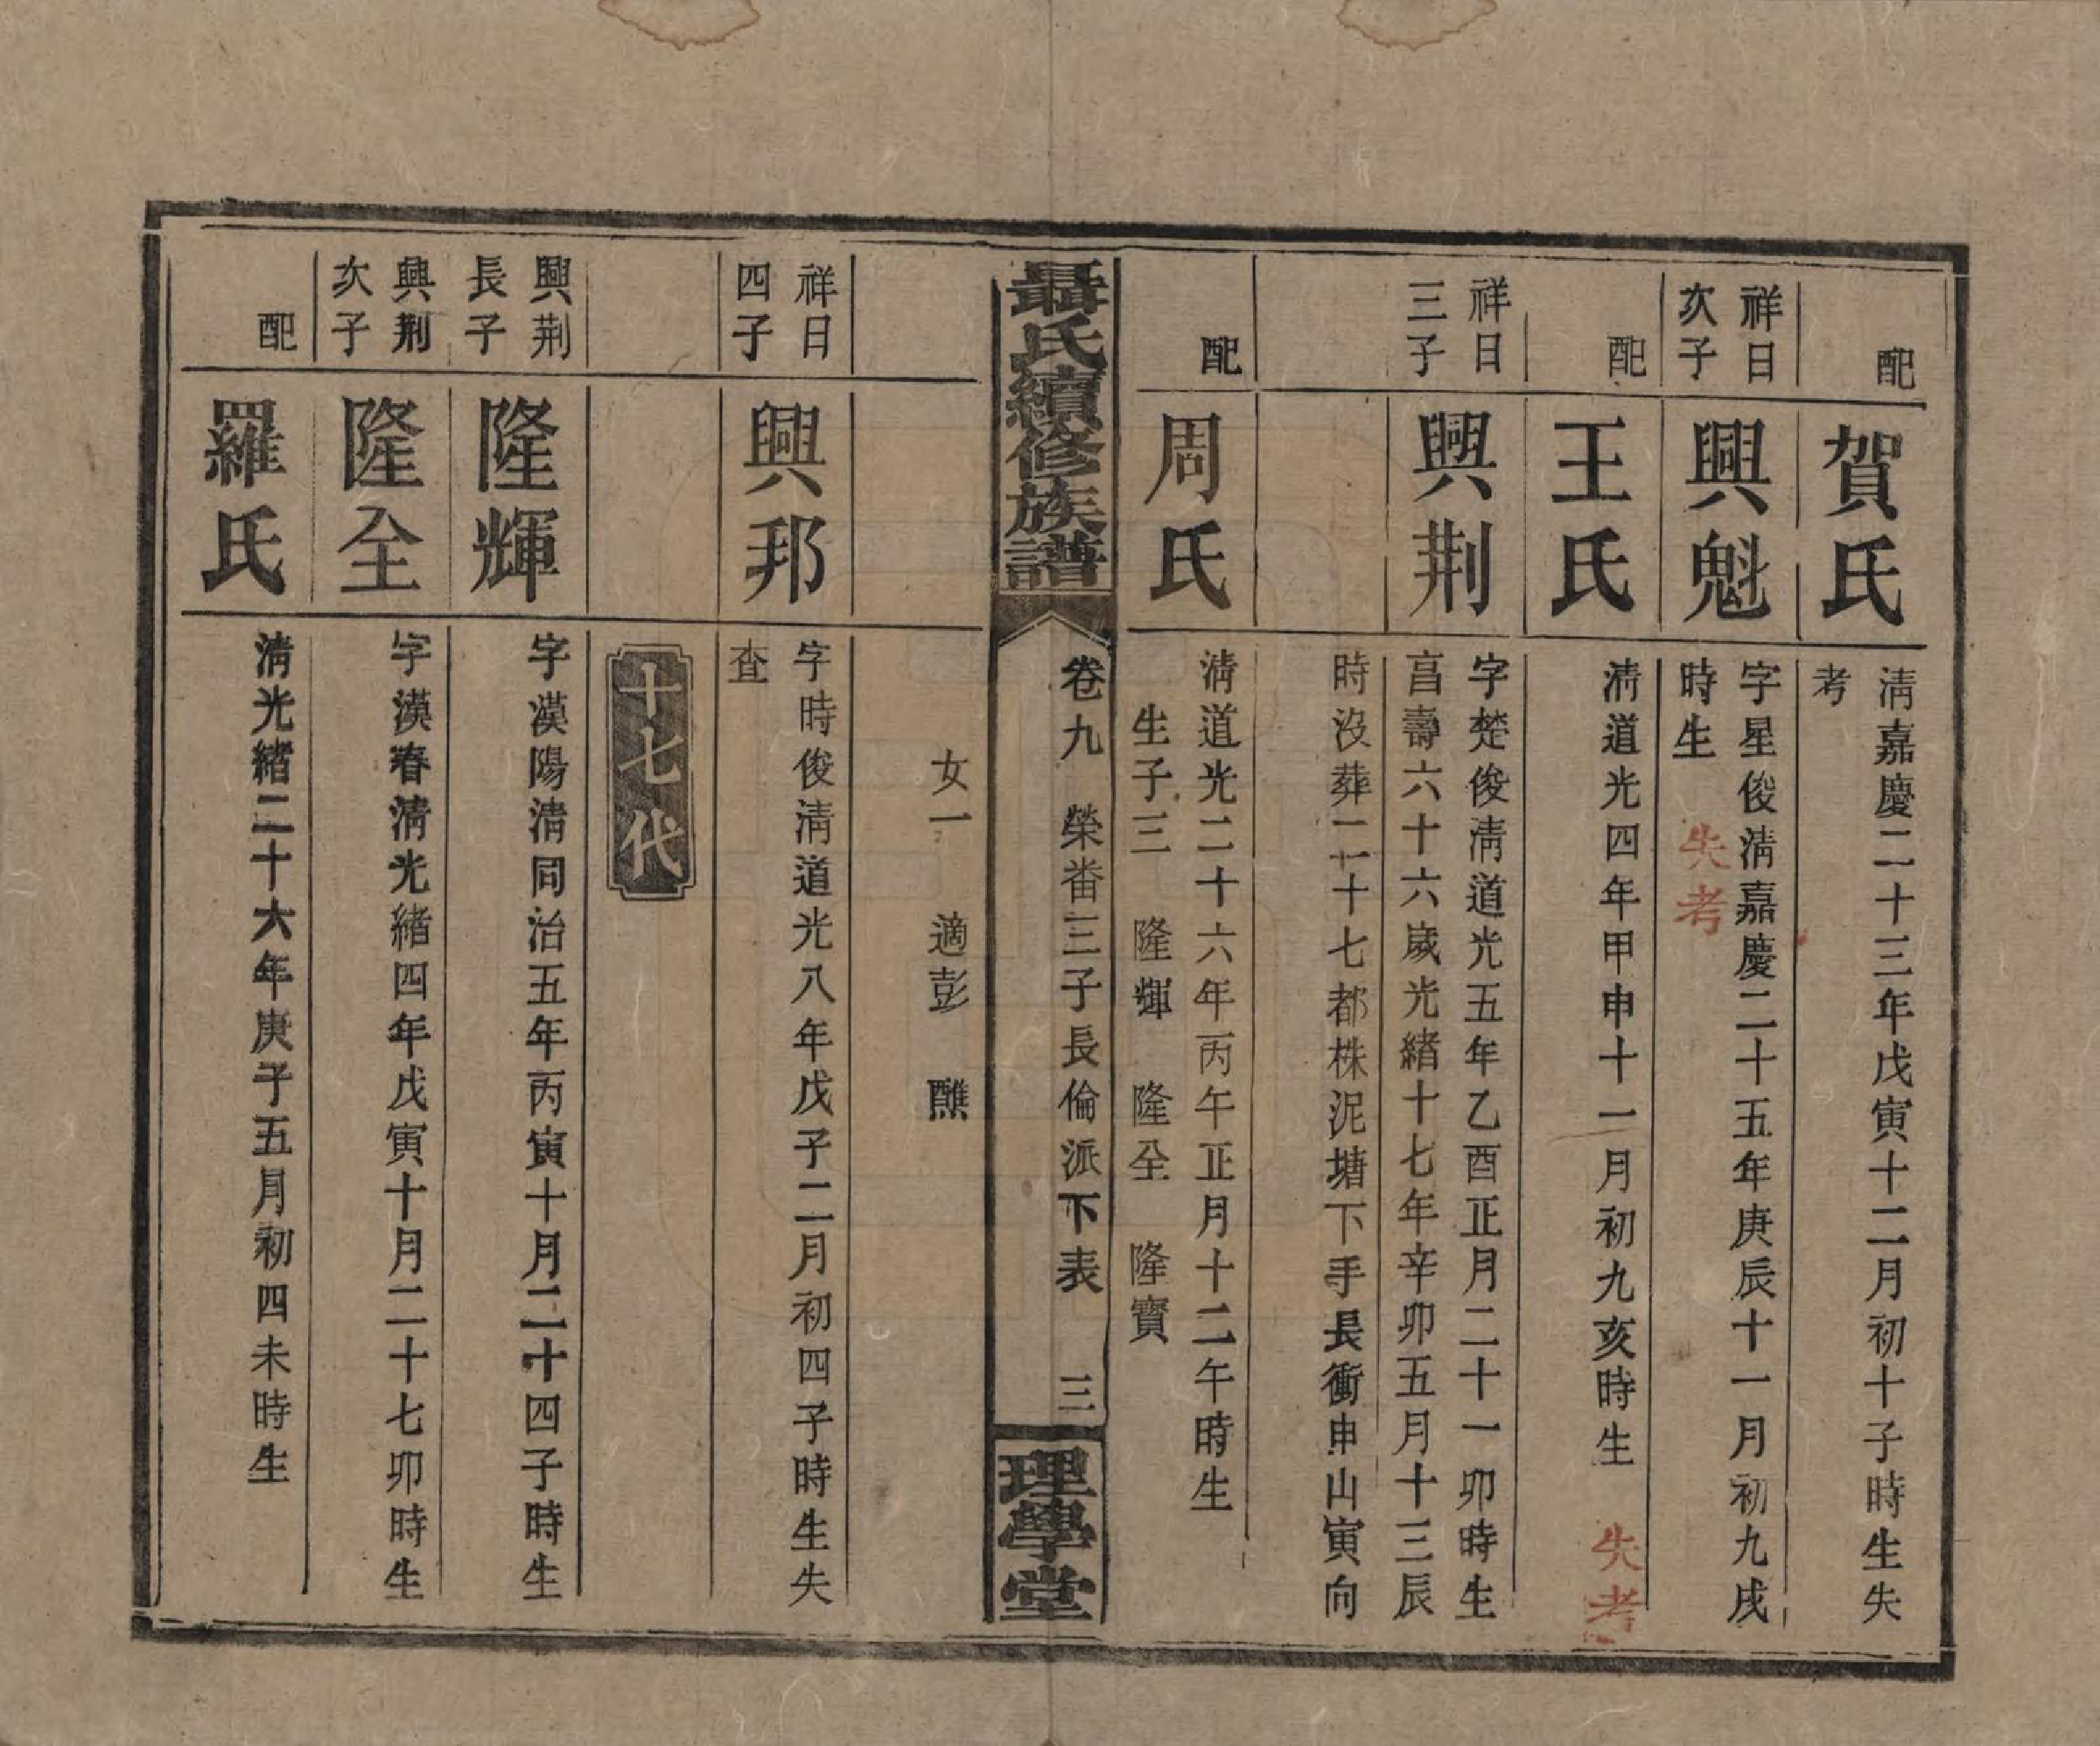 配
賀氏
清嘉慶二十三年戊寅十二月初十子時生失
考
祥日
次子
興魁
字星俊清嘉慶二十五年庚辰十一月初九戌
時生
失考
配
王氏
清道光四年甲申十一月初九亥時生
失考
祥日
三子
興荆
字楚俊清道光五年乙酉正月二十一卯時生
昌壽六十六歲光緒十七年辛卯五月十三辰
時沒葬二十七都株泥塘下手長衝申山寅向
配
周氏
清道光二十六年丙午正月十二午時生
生子三 隆輝 隆全 隆寳
聶氏續修族譜
卷九 榮畨三子長倫派下表 三
理學堂
女一 適彭 醮
祥日
四子
興邦
字時俊清道光八年戊子二月初四子時生失
查
十七代
興荆
長子
隆輝
字漢陽清同治五年丙寅十月二十四子時生
興荆
次子
隆全
字漢春清光緒四年戊寅十月二十七卯時生
配
羅氏
清光緒二十六年庚子五月初四未時生